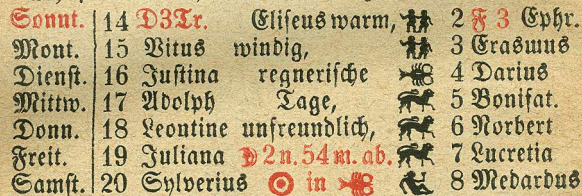 Sonnt. 14 D3Tr. Eliseus warm, 2 F 3 Ephr.
Mont. 15 Vitus windig, 3 Erasmus
Dienst. 16 Justina regnerische 4 Darius
Mittw. 17 Adolph Tage, 5 Bonifat.
Donn. 18 Leontine unfreundlich, 6 Norbert
Freit. 19 Juliana 2 n. 54 m. ab. 7 Lucretia
Samst. 20 Sylverius in 8 Medardus